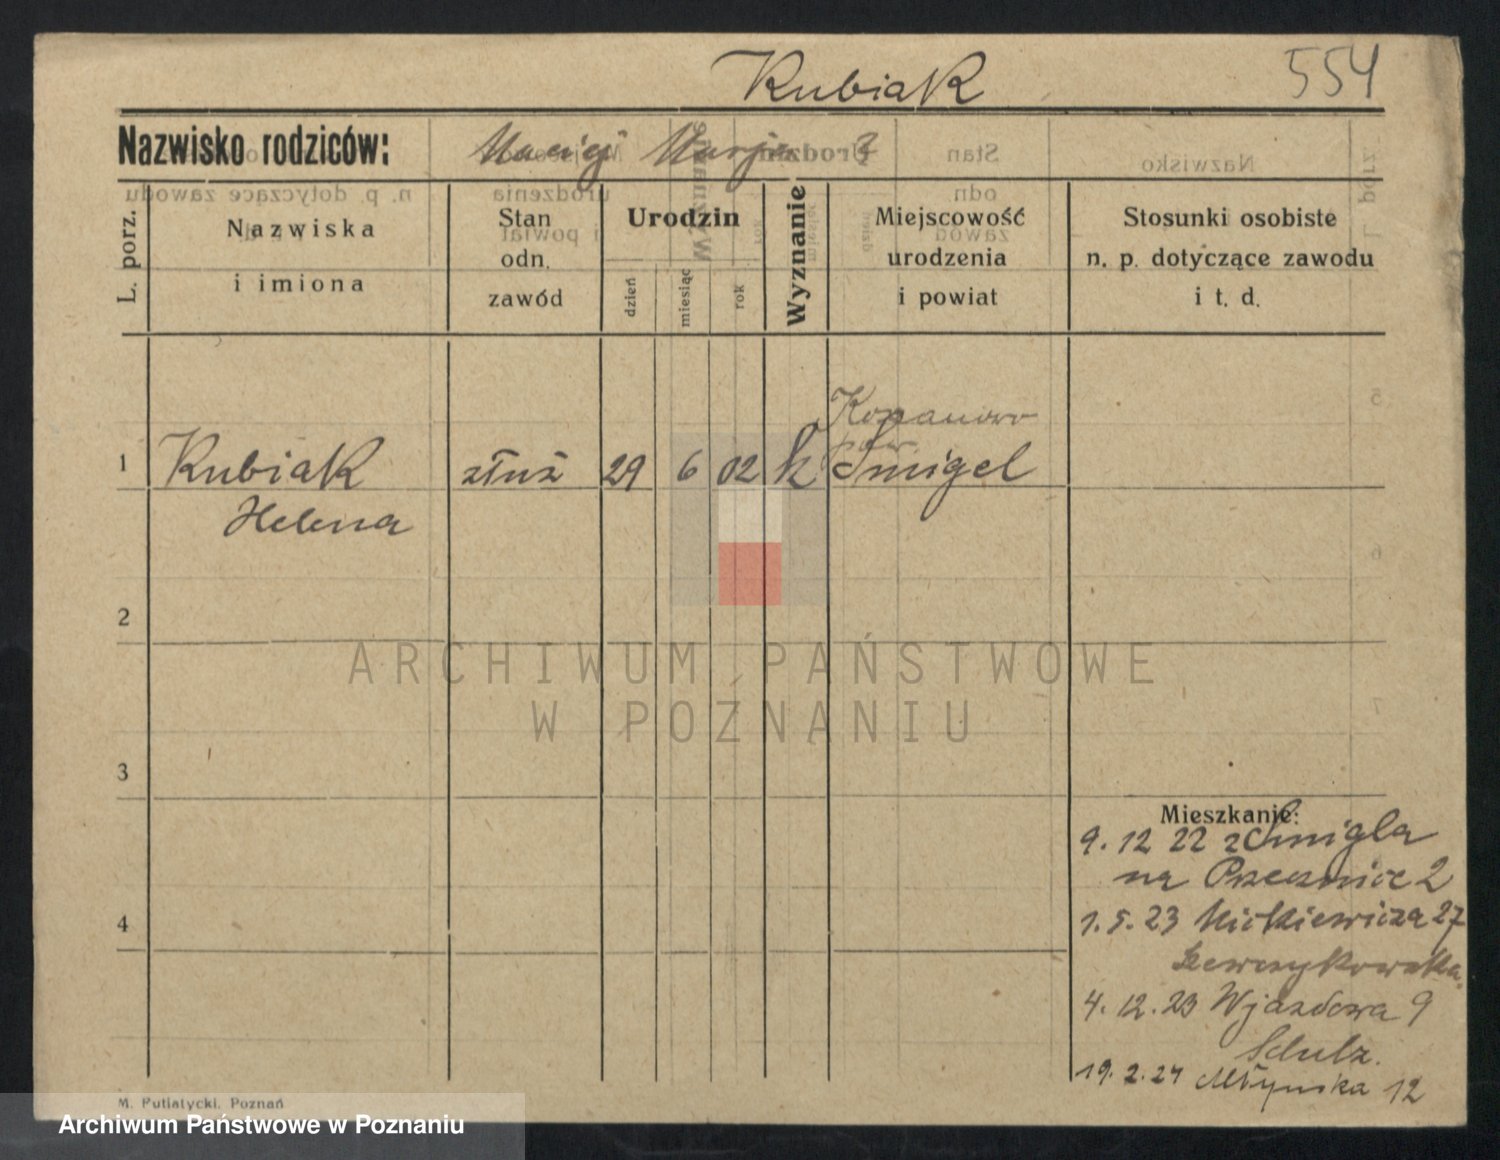 Kubiak 554
Nazwisko rodziców: Maciej Marja
L. porz.
Nazwiska
i imiona
Stan
odn.
zawód
Urodzin
dzień
miesiąc
rok
Wyznanie
Miejscowość
urodzenia
i powiat
Stosunki osobiste
n. p. dotyczące zawodu
i t. d.
Kopanowo
pow.
1 Kubiak służ 29 6 02 k Śmigel
Helena
2
3
4
ARCHIWUM PAŃSTWOWE
W POZNANIU
Mieszkanie:
9. 12 22 z Śmigla
na Przecznice 2
1. 5. 23 Mickiewicza 27
Szewczykowska
4. 12. 23 Wjazdowa 9
Schulz.
19. 2. 24 Młyńska 12
M. Putiatycki, Poznań
Archiwum Państwowe w Poznaniu